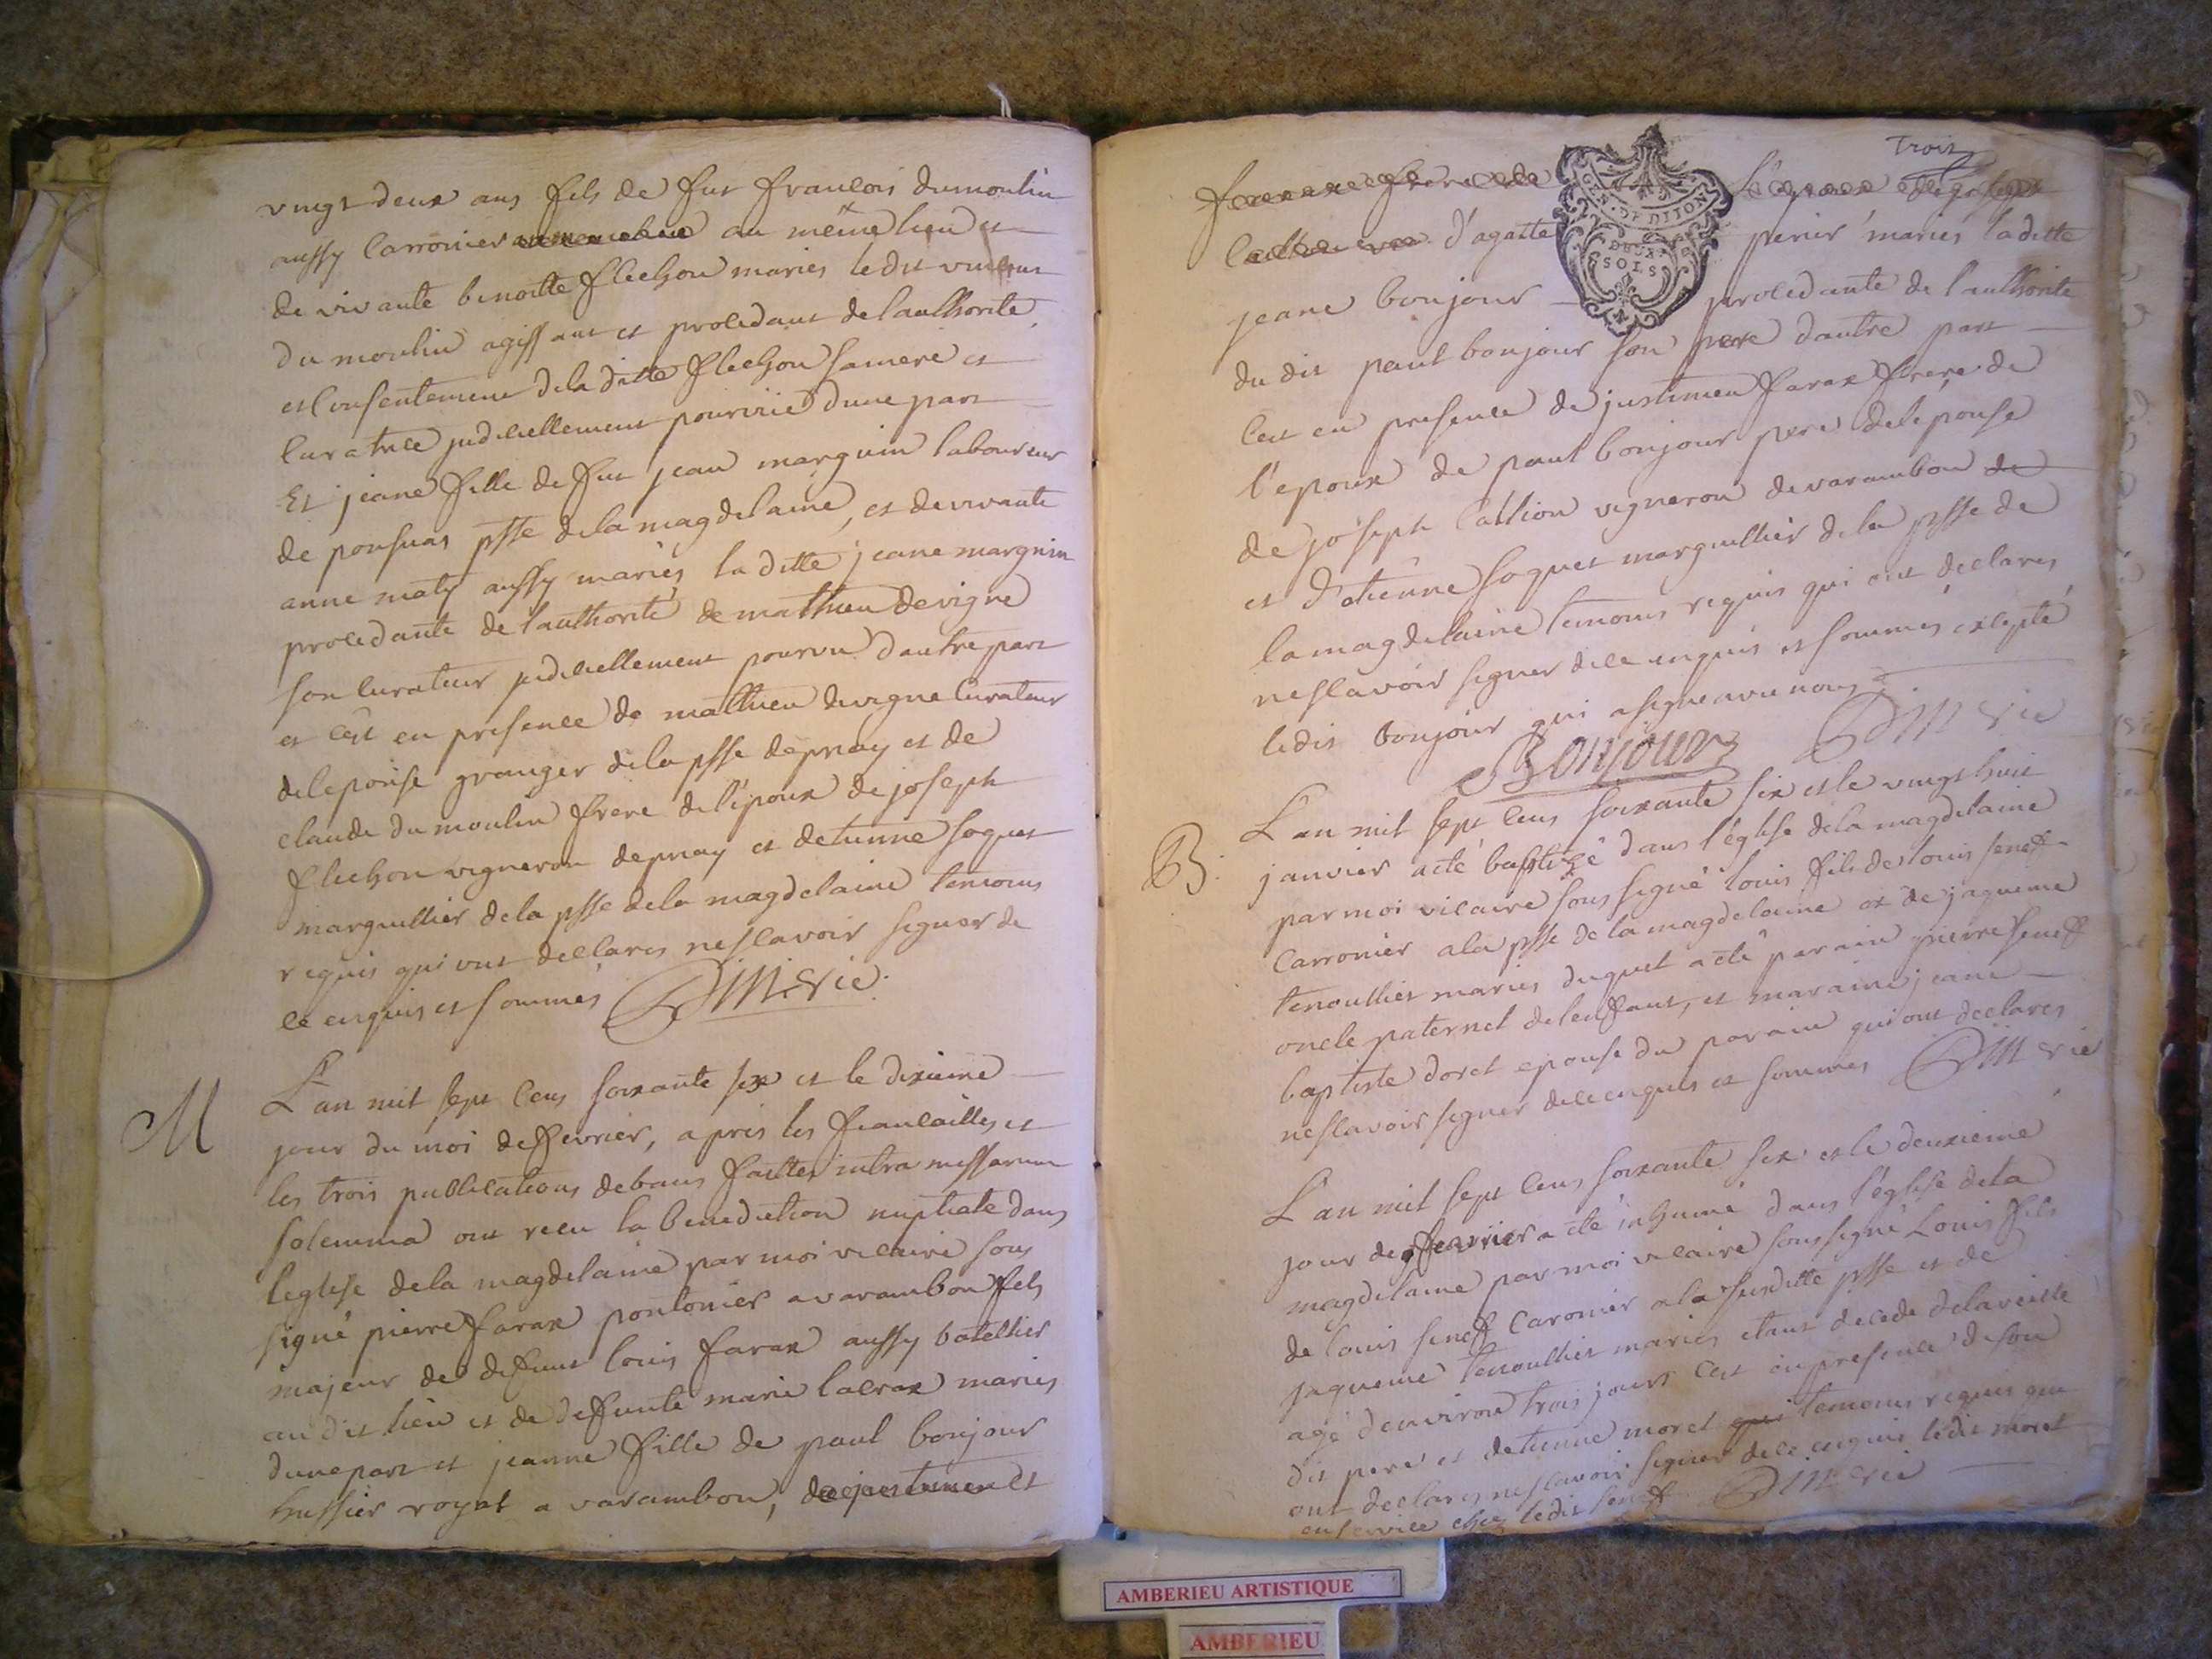 vingt deux ans fils de fut francois dumoulin
aussy carronier au même lieu et
de vivante benoitte flechon mariés ledit vincent
du moulin agissant et procedant de lauthorite
et consentement de la ditte flechon sa mere et
curatrice judiciellement pourvue d'une part
Et jeane fille de fut jean marguin laboureur
de ponsuas psse de la magdelaine, et de vivante
anne maty aussy mariés la ditte jeane marguin
procedante de lauthorité de mathieu devigne
son curateur judiciellement pourvu dautre part
et cest en presence de mathieu devigne curateur
de lepouse granger de la psse depnay et de
claude du moulin frere de l'epoux de joseph
flechon vigneron depnay et detienne soquet
marguillier de la psse de la magdelaine temoins
requis qui ont declarés ne scavoir signer de
ce enquis et sommés Dimerie
M
L'an mil sept cens soixante six et le dixieme
jour du moi de fevrier, apres les fiancailles et
les trois publications de bans faittes intra missarum
solemnia ont recu la benediction nuptiale dans
leglise de la magdelaine par moi vicaire sous
signé pierre farax pontonier a varambon fils
majeur de defunt louis farax aussy batellier
au dit lieu et de defunte marie lacrax mariés
dune part et jeanne fille de paul bonjour
huissier royal a varambon, de justinien et
trois
GEN. DE DIJON
DEUX
SOLS
frere de l'epoux de joseph
d'agatte perier mariés laditte
jeane bonjour procedante de l'authorite
du dit paul bonjour son pere dautre part
cest en presence de justinien farax frere de
l'epoux de paul bonjour pere de lepouse
de joseph callion vigneron de varambon de
et d'etienne soquet marguillier de la psse de
la magdelaine temoins requis qui ont declarés
ne scavoir signer de ce enquis et sommés excepté
ledit bonjour qui a signe avec nous
Bonjour Dimerie
B.
L'an mil sept cens soixante six et le vingt huit
janvier a été baptizé dans l'église de la magdelaine
par moi vicaire sous signé louis fils de louis seneff
carronier a la psse de la magdelaine et de jaqueme
tenoullier mariés duquel a été parain pierre seneff
oncle paternel de lenfant, et maraine jeane
baptiste doret epouse du parain qui ont declarés
ne scavoir signer de ce enquis et sommes Dimerie
L'an mil sept cens soixante six et le deuxieme
jour de fevrier a été inhumé dans l'église de la
magdelaine par moi vicaire sous signé Louis fils
de louis seneff caronier a la susditte psse et de
jaqueme tenoullier mariés etant decede de la veille
agé denviron trois jours cest en presence de son
dit pere et detienne moret qui temoins requis qui
ont declarés ne scavoir signer de ce enquis ledit moret
en service chez ledit seneff Dimerie
AMBERIEU ARTISTIQUE
AMBERIEU